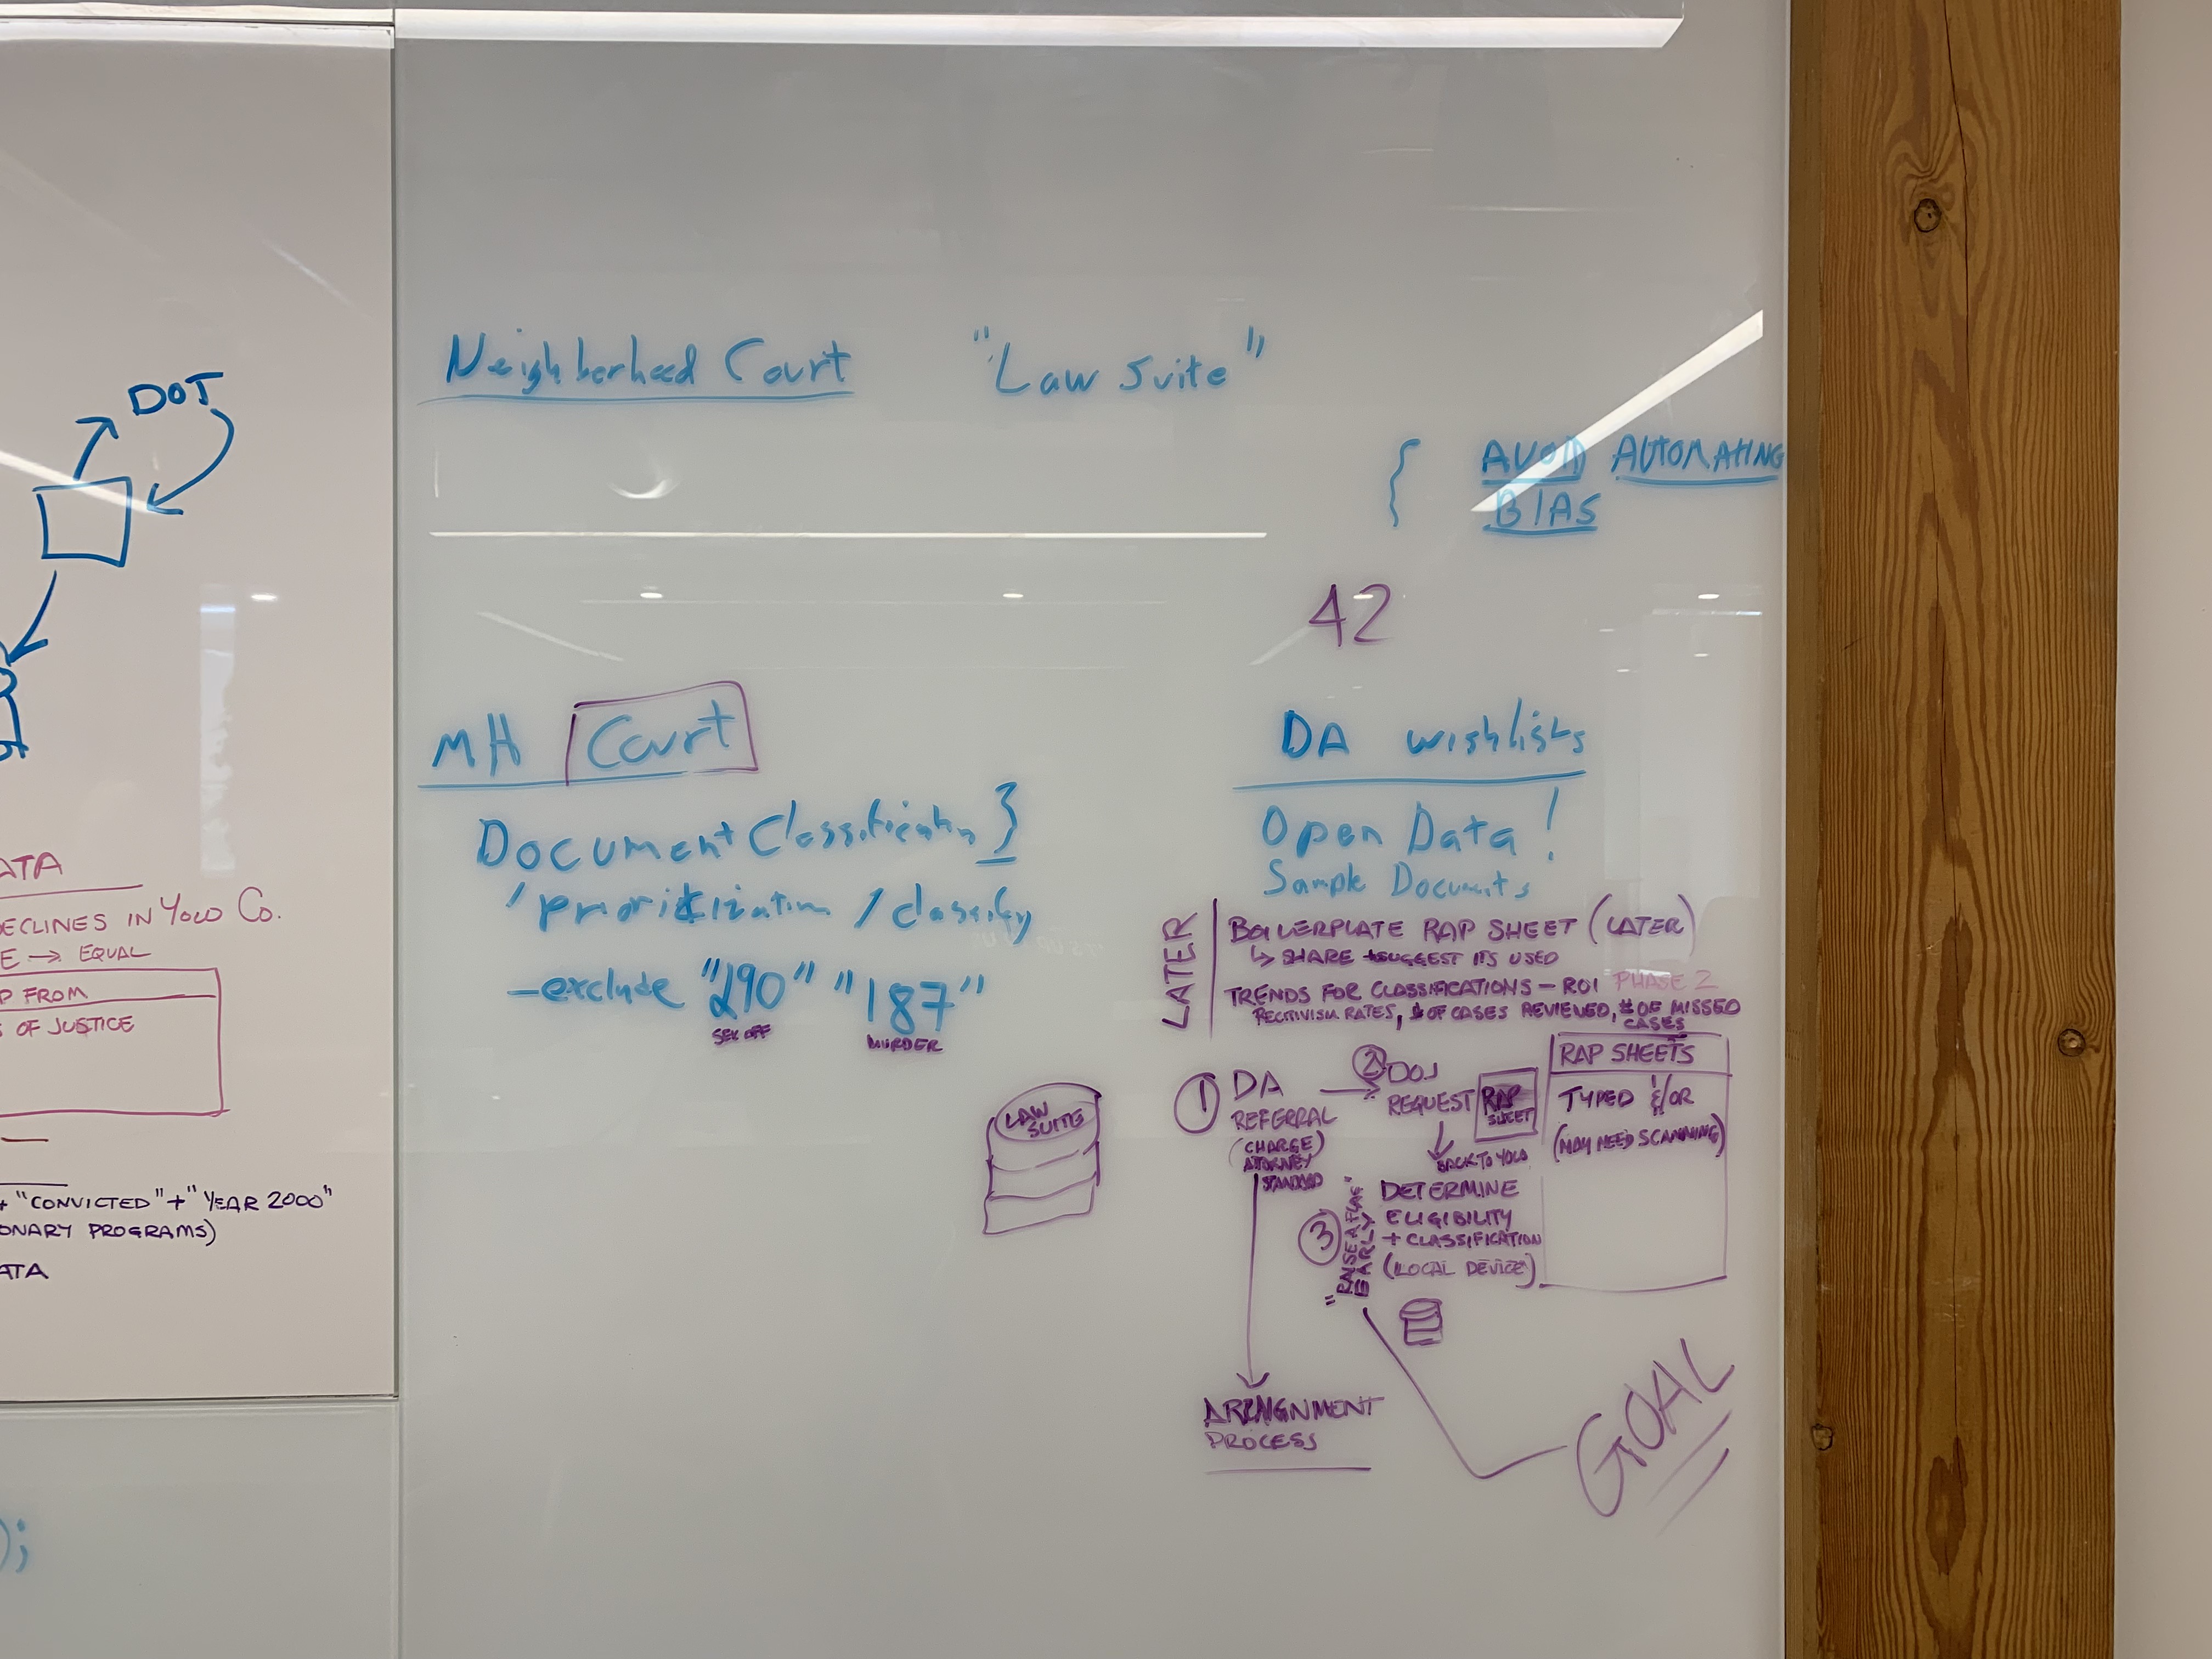 DOJ
ATA
ECLINES IN YOLO CO.
E → EQUAL
P FROM
S OF JUSTICE
+ "CONVICTED" + "YEAR 2000"
ONARY PROGRAMS)
ATA
);
Neighborhood Court
"Law Suite"
{ AVOID AUTOMATING
BIAS
42
MH Court
Document Classification }
/ prioritization / classify
- exclude "290" "187"
SEX OFF
MURDER
LAW
SUITE
DA wishlists
Open Data!
Sample Documents
LATER
BOILERPLATE RAP SHEET (LATER)
↳ SHARE + SUGGEST ITS USED
TRENDS FOR CLASSIFICATIONS - ROI PHASE 2
RECITIVISM RATES, # OF CASES REVIEWED, # OF MISSED
CASES
① DA → ② DOJ
REFERRAL
(CHARGE)
ATTORNEY
STANDARD
REQUEST RAP
SHEET
BACK TO YOLO
RAP SHEETS
TYPED &/OR
(MAY NEED SCANNING)
③ "RAISE A FLAG"
EARLY
DETERMINE
ELIGIBILITY
+ CLASSIFICATION
(LOCAL DEVICE)
ARRAIGNMENT
PROCESS
GOAL